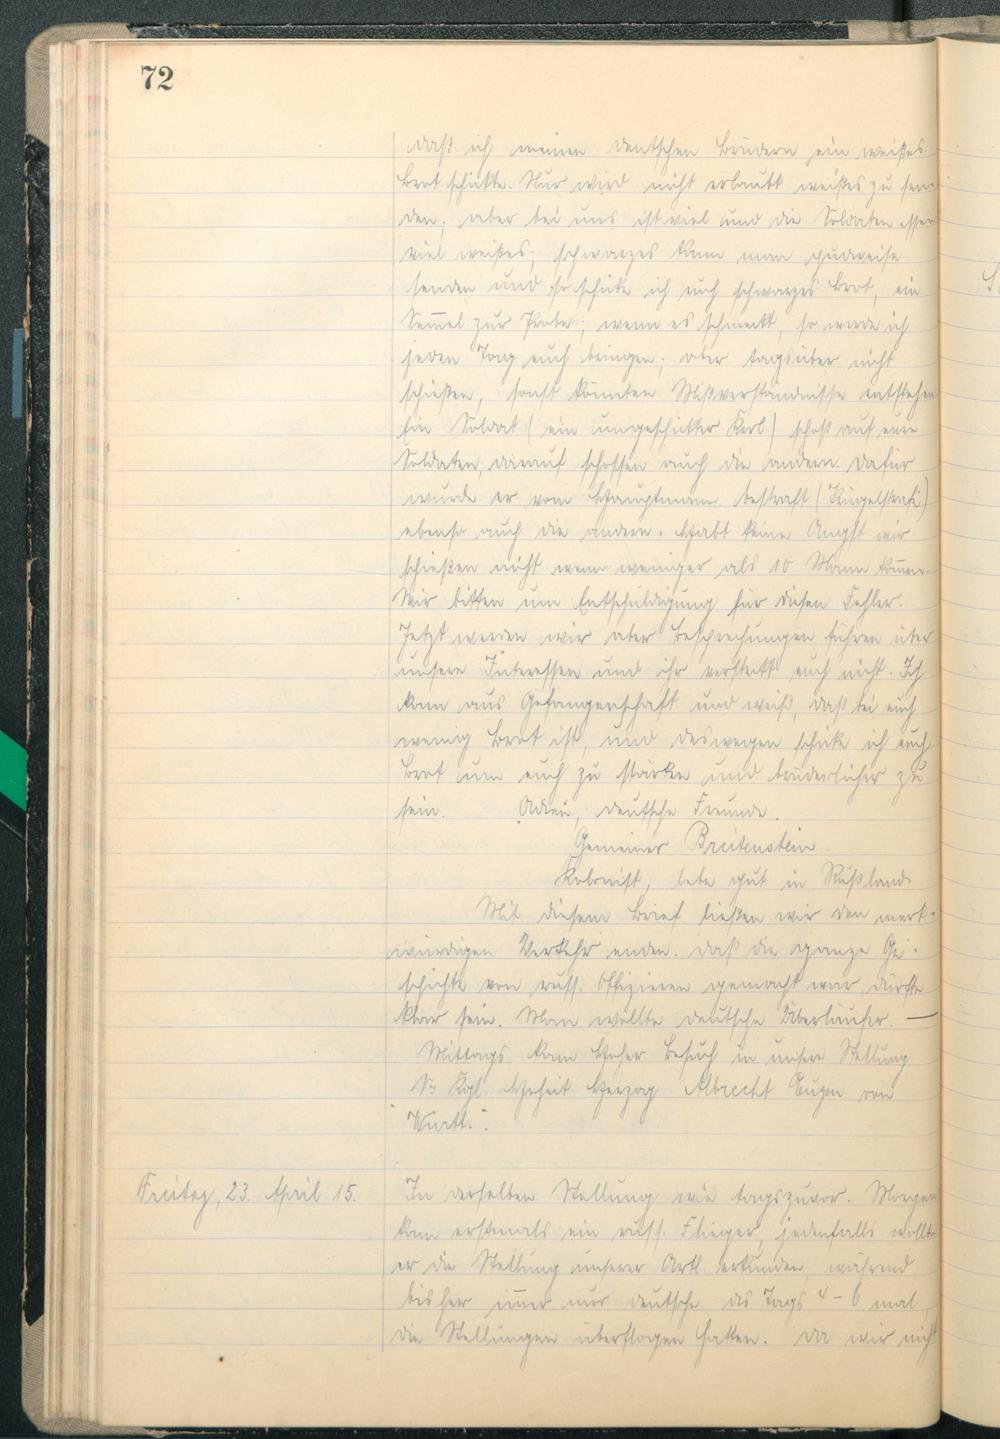 72
daß ich meinen deutschen Brüdern ein weißes
Brot schickte. Nur wird nicht erlaubt weißes zu sen-
den; aber bei uns ist viel und die Soldaten essen
viel weißes; schwarzes kann man pudweise
senden und so schicke ich euch schwarzes Brot, ein
Sem̅el zur Probe; wenn es schmeckt, so werde ich
jeden Tag euch bringen; aber tagsüber nicht
schießen, sonst könnten Mißverständnisse entstehen
Ein Soldat (ein ungeschickter Kerl) schoß auf eure
Soldaten, darauf schossen auch die andern. Dafür
wurde er vom Hauptmann bestraft
ebenso auch die andern. Habt keine Angst wir
schießen nicht wenn weniger als 10 Mann kom̅en.
Wir bitten um Entschuldigung für diesen Fehler.
Jetzt werden wir aber Besprechungen führen über
unsere Interessen und ihr versteckt euch nicht. Ich
kam aus Gefangenschaft und weiß, daß bei euch
wenig Brot ist, und deswegen schicke ich euch
Brot um euch zu stärken und brüderlicher zu
sein. Adieu, deutsche Freunde.
Gemeiner Breitenstein
Kolonist, lebe gut in Rußland
Mit diesem Brief ließen wir den merk-
würdigen Verkehr enden. Daß die ganze Ge-
schichte von russ. Offizieren gemacht war, dürfte
klar sein. Man wollte deutsche Überläufer. —
Mittags kam hoher Besuch in unsere Stellung
"Se Kgl. Hoheit Herzog Albrecht Eugen von
Württ.".
Freitag, 23. April 15.
In derselben Stellung wie tagszuvor. Morgens
kam erstmals ein russ. Flieger, jedenfalls wollte
er die Stellung unserer Artl. erkunden, während
bisher im̅er nur deutsche des Tags 4–6 mal,
die Stellungen überflogen hatten. Da wir nicht